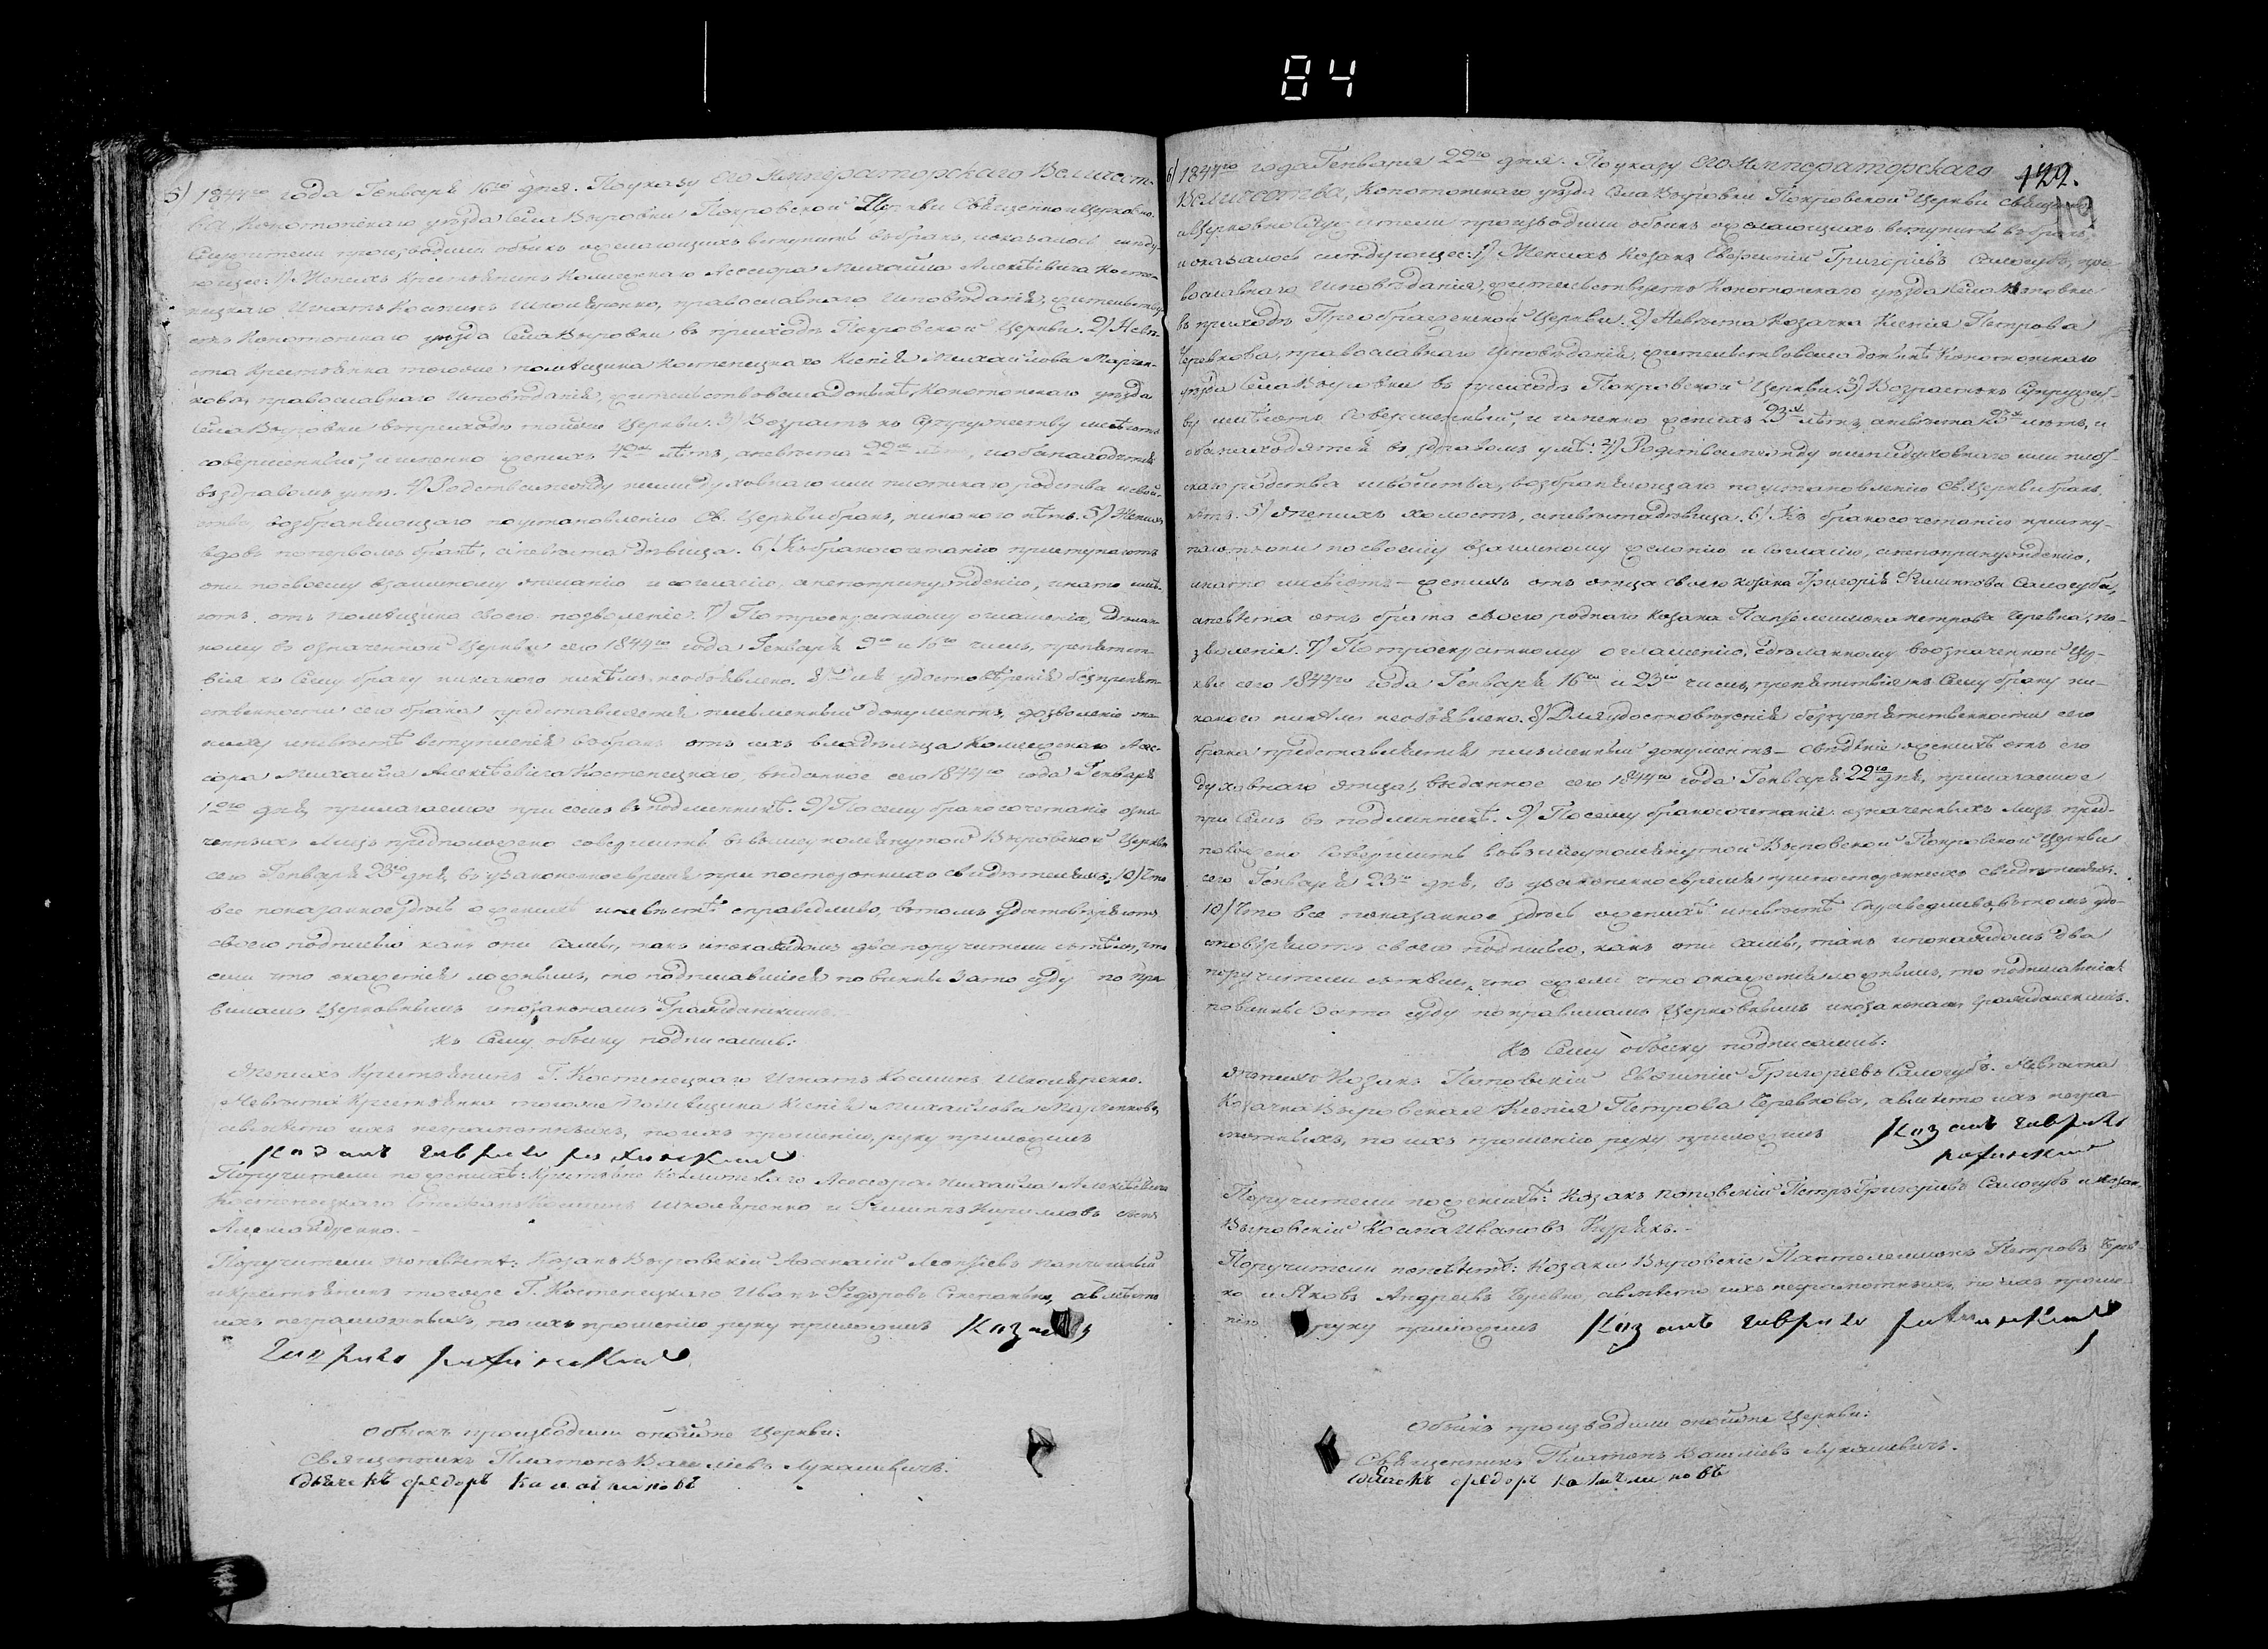 84
5) 1844го года Генваря 16го дня. По указу Его Императорскаго Величест-
ва, Конотопскаго уѣзда Села Выровки Покровской Церкви Священно и Церковно-
Служители производили обыскъ о желающихъ вступить въ бракъ, и оказалось слѣду-
ющее: 1) Женихъ Крестьянинъ Колежскаго Асессора Михайла Алексѣевича Косте-
нецкаго Игнатъ Косминъ Школяренко, православнаго исповѣданія, жительствуетъ
Конотопскаго уѣзда Села Выровки въ приходѣ Покровской Церкви. 2) Невѣ-
ста Крестьянка тогоже помѣщика Костенецкаго Ксенія Михайлова Марчен-
кова, православнаго исповѣданія, жительствовала донынѣ, Конотопскаго уѣзда
Села Выровки въ приходѣ тойже Церкви. 3) Возрастъ къ Супружеству имѣютъ
совершенный, и именно женихъ лѣтъ, а невѣста 22 лѣтъ, и оба находятся
въ здравомъ умѣ. 4) Родства между ними духовнаго или плотскаго родства и свой-
ства, возбраняющаго по установленію Св. Церкви бракъ, никакого нѣтъ. 5) Женихъ
вдовъ по первомъ бракѣ, а невѣста дѣвица. 6) Къ бракосочетанію приступаютъ
они по своему взаимному желанію и согласію, а не по принужденію, и на то имѣ-
ютъ отъ помѣщика своего позволеніе. 7) По троекратному оглашенію, сдѣлан-
ному въ означенной Церкви сего 1844го года Генваря 9го и 16го чиселъ, препятст-
вія къ Сему браку никакого никѣмъ необъявлено. 8) Для удостовѣренія безпрепят-
ственности сего брака представляется письменный документъ, дозволеніе же-
ниху и невѣстѣ вступленія въ бракъ отъ ихъ владѣльца Колежскаго Асес-
сора Михайла Алексѣевича Костенецкаго, выданное сего 1844го года Генваря
дня, прилагаемое при семъ въ подлинникѣ. 9) По сему бракосочетаніе озна-
ченныхъ лицъ предположено совершить въ вышеупомянутой Выровской Церкви
сего Генваря 23го дня, въ узаконенное время при постороннихъ свидѣтеляхъ. 10) Что
все показанное здѣсь о женихѣ и невѣстѣ справедливо, въ томъ удостовѣряютъ
своею подписью какъ они сами, такъ и по каждомъ два поручители съ тѣмъ, что
если что окажется ложнымъ, то подписавшіеся повинны за то суду по пра-
виламъ Церковнымъ и по законамъ Гражданскимъ.
Къ Сему обыску подписались:
Женихъ Крестьянинъ Г. Костенецкаго Игнатъ Косминъ Школяренко.
Невѣста Крестьянка тогоже Помѣщика Ксенія Михайлова Марченкова,
а вмѣсто ихъ неграмотныхъ, по ихъ прошенію, руку приложилъ
козакъ гаврило
Поручители по женихѣ: Крестьяне Колежскаго Асессора Михайла Алексѣевича
Костенецкаго Косминъ Школяренко и Филиппъ Кириловъ сынъ
Поручители по невѣстѣ: Козакъ Выровскій Афанасій Леонтіевъ
и крестьянинъ тогоже Г. Костенецкаго Иванъ Федоровъ а вмѣсто
ихъ неграмотныхъ, по ихъ прошенію руку приложилъ козакъ
гаврило
Обыскъ производили тойже Церкви:
Священникъ Платонъ Василіевъ Лукашевичъ.
дьячекъ федоръ
122.
6) 1844го года Генваря 22го дня. По указу Его Императорскаго
Величества, Конотопскаго уѣзда Села Выровки Покровской Церкви Священно
и Церковно Служители производили обыскъ о желающихъ вступить въ бракъ
и оказалось слѣдующее: 1) Женихъ Козакъ Евфимій Григоріевъ Салогубъ, пра-
вославнаго исповѣданія, жительствуетъ Конотопскаго уѣзда Села Поповки
въ приходѣ Преображенской Церкви. 2) Невѣста Козачка Ксенія Петрова
Черевкова, православнаго исповѣданія, жительствовала донынѣ Конотопскаго
уѣзда Села Выровки въ приходѣ Покровской Церкви. 3) Возрастъ къ Супружест-
ву имѣютъ совершенный, и именно женихъ 23х лѣтъ, а невѣста лѣтъ, и
оба находятся въ здравомъ умѣ. 4) Родства между ними духовнаго или плот-
скаго родства и свойства, возбраняющаго по установленію Св. Церкви бракъ,
нѣтъ. 5) Женихъ холостъ, а невѣста дѣвица. 6) Къ бракосочетанію присту-
паютъ они по своему взаимному желанію и согласію, а не по принужденію,
и на то имѣютъ – женихъ отъ отца своего козака Григорія Филиппова Салогуба,
а невѣста отъ брата своего роднаго козака Пантелеимона Петрова Черевка, по-
зволеніе. 7) По троекратному оглашенію, сдѣланному въ означенной Це-
ркви сего 1844го года Генваря 16го и 23го чиселъ, препятствія къ Сему браку ни-
какого никѣмъ необъявлено. 8) Для удостовѣренія безпрепятственности сего
брака представляется письменный документъ – свѣдѣніе о женихѣ отъ его
духовнаго отца, выданное сего 1844го года Генваря 22го дня, прилагаемое
при Семъ въ подлинникѣ. 9) По сему бракосочетаніе означенныхъ лицъ пред-
положено совершить въ вышеупомянутой Выровской Покровской Церкви
сего Генваря 23го дня, въ узаконенное время при постороннихъ свидѣтеляхъ.
10) Что все показанное здѣсь о женихѣ и невѣстѣ справедливо, въ томъ удо-
стовѣряютъ своею подписью, какъ они сами, такъ и по каждомъ два
поручители съ тѣмъ, что ежели что окажется ложнымъ, то подписавшіеся
повинны за то суду по правиламъ Церковнымъ и по законамъ Гражданскимъ.
Къ Сему обыску подписались:
Женихъ Козакъ Поповскій Евфимій Григоріевъ Салогубъ. Невѣста
Козачка Выровская Ксенія Петрова Черевкова, а вмѣсто ихъ негра-
мотныхъ, по ихъ прошенію руку приложилъ козакъ гаврило
Поручители по женихѣ: Козакъ Поповскій Петръ Григоріевъ Салогубъ и козакъ
Выровскій Косма Ивановъ
Поручители по невѣстѣ: Козаки Выровскіе Пантелеимонъ Петровъ Черев-
ко и Яковъ Андреевъ Черевко, а вмѣсто ихъ неграмотныхъ, по ихъ проше-
нію руку приложилъ козакъ гаврило
Обыскъ производили тойже Церкви:
Священникъ Платонъ Василіевъ Лукашевичъ.
дьячекъ федоръ